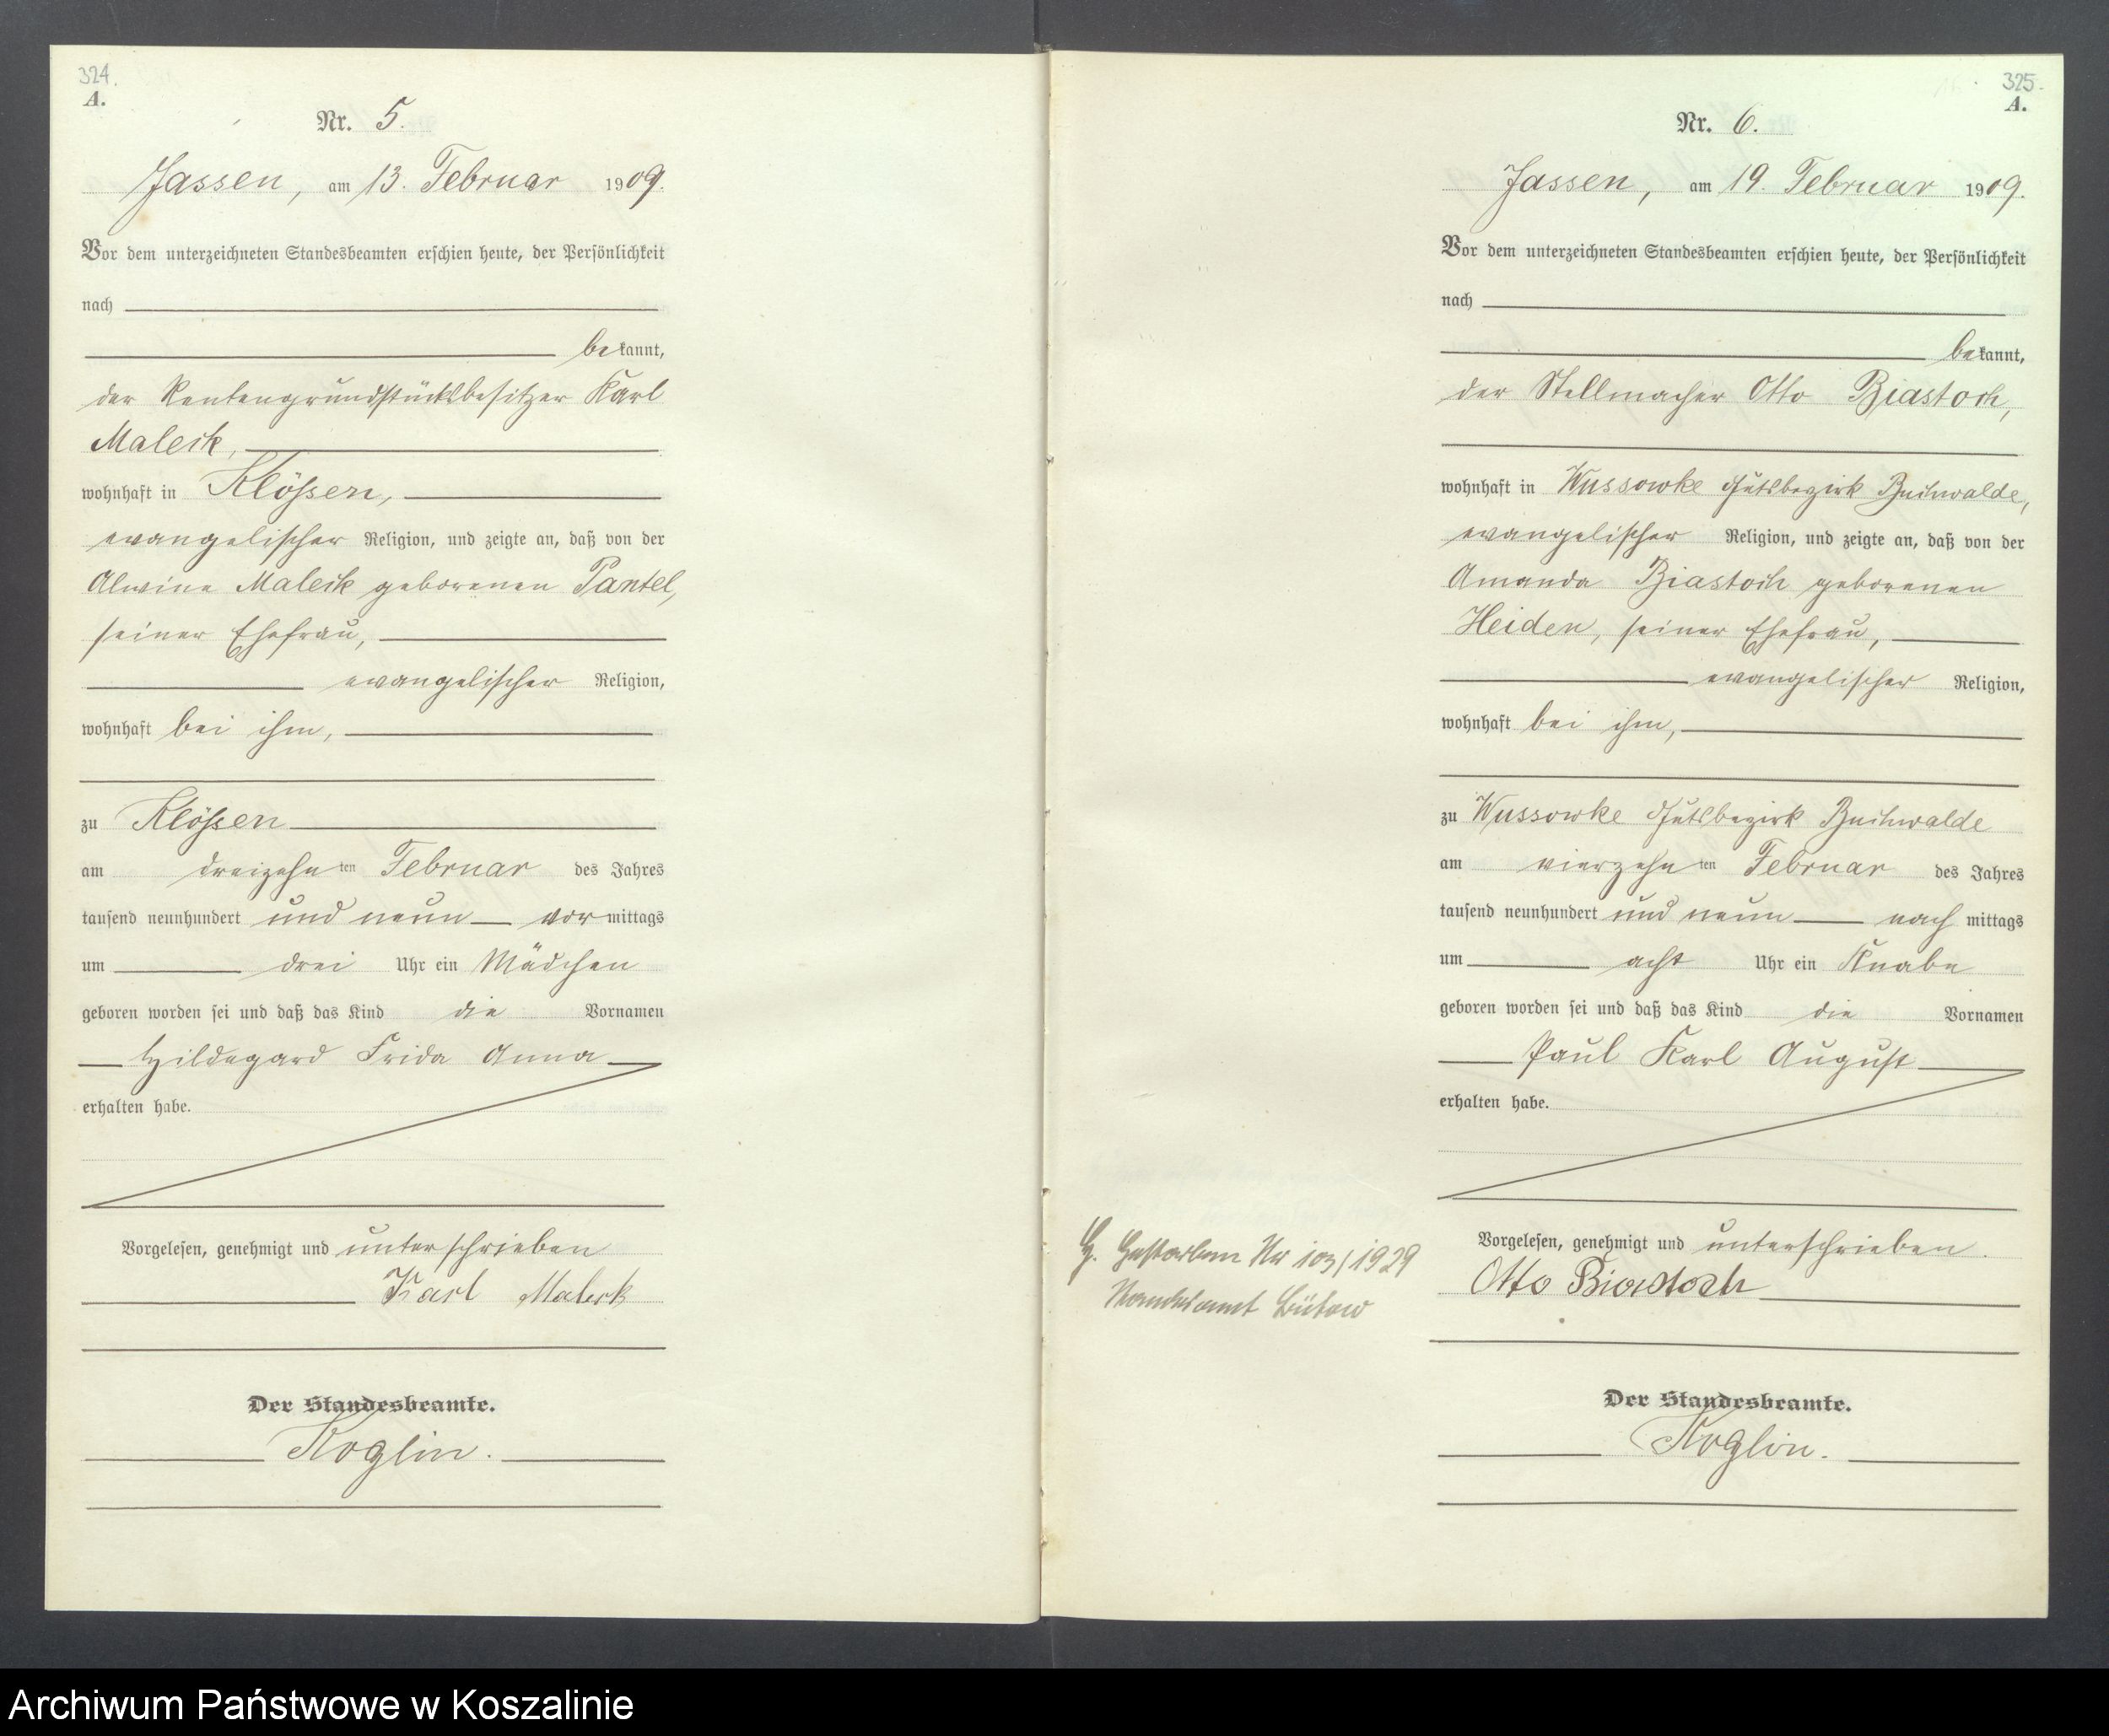 324.
A.
Nr. 5.
Jassen, am 13. Februar 1909.
Vor dem unterzeichneten Standesbeamten erschien heute, der Persönlichkeit
nach
bekannt,
der Rentengrundstücksbesitzer Karl
Maleck,
wohnhaft in Klössen,
evangelischer Religion, und zeigte an, daß von der
Alwine Maleck geborenen Pantel,
seiner Ehefrau,
evangelischer Religion,
wohnhaft bei ihm,
zu Klössen
am dreizehnten Februar des Jahres
tausend neunhundert und neun vormittags
um drei Uhr ein Mädchen
geboren worden sei und daß das Kind die Vornamen
Hildegard Frida Anna
erhalten habe.
Vorgelesen, genehmigt und unterschrieben
Karl Maleck
Der Standesbeamte.
Koglin.
325.
A.
Nr. 6.
Jassen, am 19. Februar 1909.
Vor dem unterzeichneten Standesbeamten erschien heute, der Persönlichkeit
nach
bekannt,
der Stellmacher Otto Biastoch,
wohnhaft in Wussowke Gutsbezirk Buchwalde,
evangelischer Religion, und zeigte an, daß von der
Amanda Biastoch geborenen
Heiden, seiner Ehefrau,
evangelischer Religion,
wohnhaft bei ihm,
zu Wussowke Gutsbezirk Buchwalde
am vierzehnten Februar des Jahres
tausend neunhundert und neun nachmittags
um acht Uhr ein Knabe
geboren worden sei und daß das Kind die Vornamen
Paul Karl August
erhalten habe.
Vorgelesen, genehmigt und unterschrieben.
Otto Biastoch
Der Standesbeamte.
Koglin.
G. Gestorben Nr 103/1929
Standesamt Bütow
Archiwum Państwowe w Koszalinie